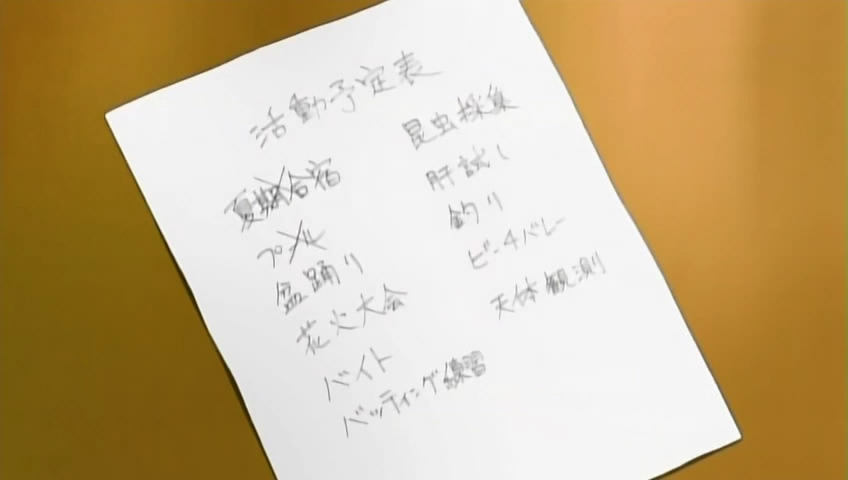 活動予定表
夏期合宿
プール
盆踊り
花火大会
バイト
バッティング練習
昆虫採集
肝試し
釣り
ビーチバレー
天体観測